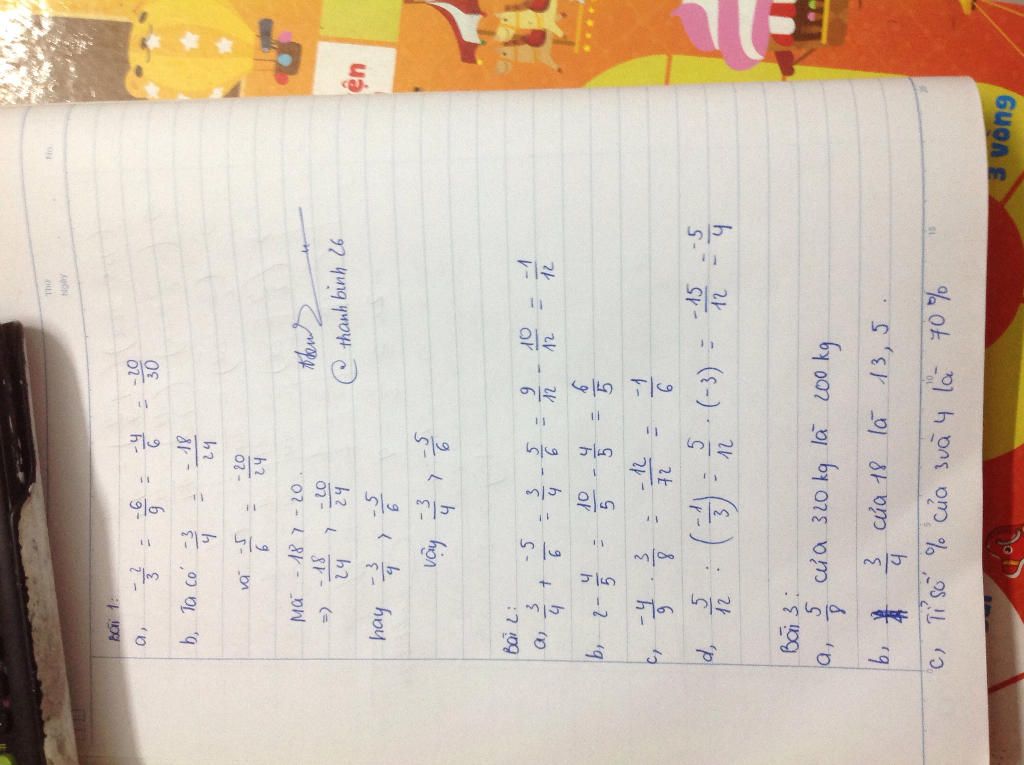 Thứ
Ngày
No.
Bài 1:
a, -2/3 = -6/9 = -4/6 = -20/30
b, Ta có -3/4 = -18/24
và -5/6 = -20/24
Mà -18 > -20
=> -18/24 > -20/24
hay -3/4 > -5/6
vậy -3/4 > -5/6
© thanhbinh 26
Bài 2:
a, 3/4 + -5/6 = 3/4 - 5/6 = 9/12 - 10/12 = -1/12
b, 2 - 4/5 = 10/5 - 4/5 = 6/5
c, -4/9 . 3/8 = -12/72 = -1/6
d, 5/12 : (-1/3) = 5/12 . (-3) = -15/12 = -5/4
Bài 3:
a, 5/8 của 320 kg là 200 kg
b, 3/4 của 18 là 13,5.
c, Tỉ số % của 3 và 4 là 70%
ện
3 vòng